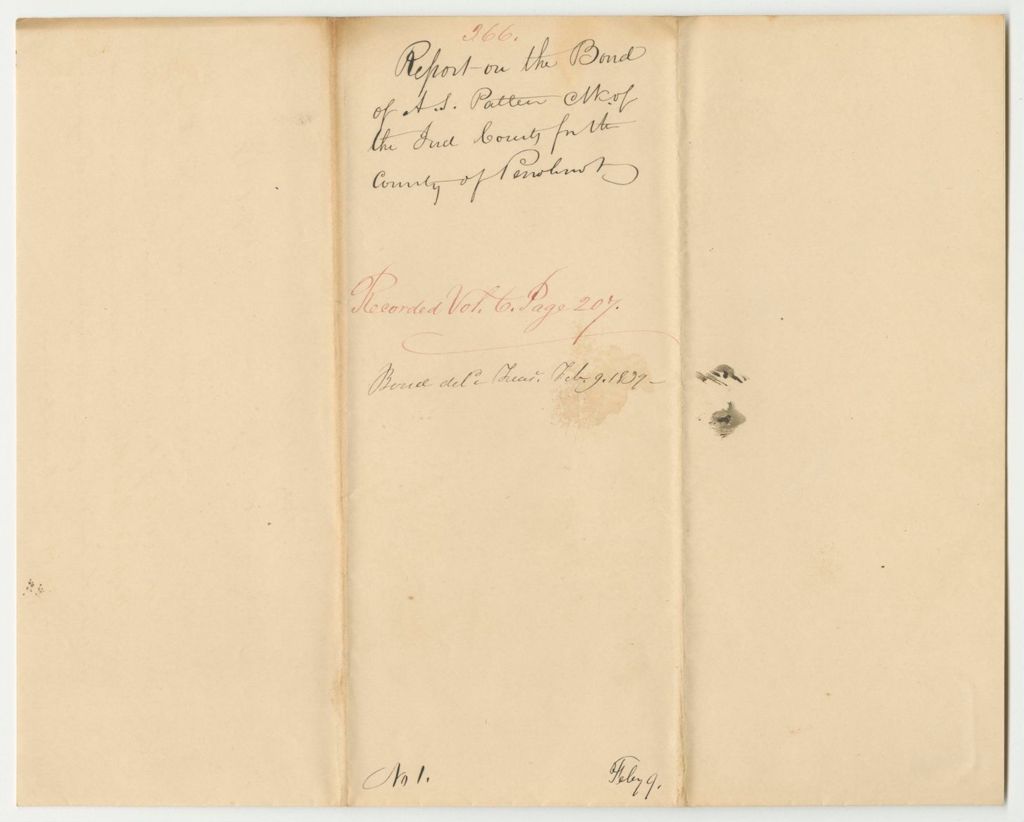 266.
Report on the Bond
of A. S. Patten Clk. of
the Jud Courts for the
County of Penobscot
Recorded Vol. 6. Page 207.
Bond deld. Treasr. Feby 9. 1837-
No 1.
Feby 9.